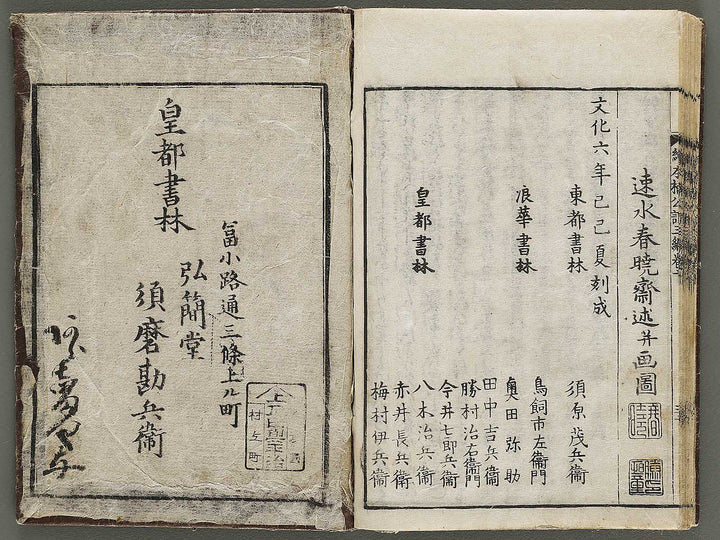 速水春暁齋述并画圖
文化六年己巳夏刻成
東都書林 須原茂兵衛
浪華書林 鳥飼市左衞門
奥田弥助
田中吉兵衛
勝村治右衞門
今井七郎兵衛
皇都書林 八木治兵衛
赤井長兵衛
梅村伊兵衛
皇都書林
冨小路通三條上ル町
弘簡堂
須磨勘兵衛